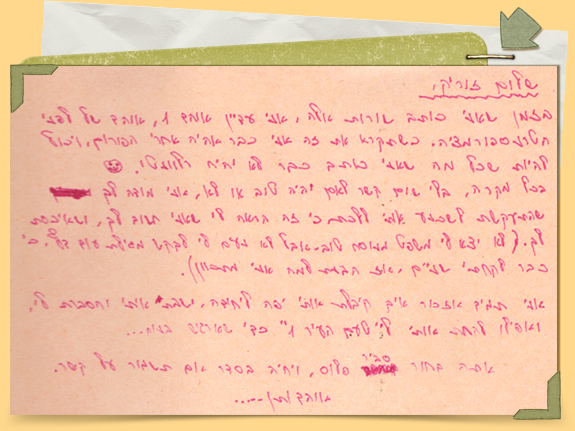 שלום זוריק,
בזמן שאני כותב שורות אלה, אני עדיין אוהד 1, אוהד של לפני
הטרנספורמציה. כשתקרא את זה אני כבר אהיה אחרי הפורים, ויכול
להיות שכל מה שאני כותב כבר לא יהיה רלוונטי.
בכל מקרה, בלי שום קשר לאם יהיה טוב או לא, אני מודה לך
שהתעקשת לשכנע אותי ללכת כי זה הראה לי שאני חשוב לך, ושאיכפת
לך. (לא יצא לי משפט מנוסח טוב, אבל לא נעים לי לבקש מגילת עוד דף, כי
כבר לקחתי שניים, אז הבנת למה אני מתכוון).
אני תמיד אזכור איך קיבלת אותי יפה ליחידה, ישבת אותי והסברת לי,
ואפילו לקחת אותי לי העיר כדי שארגיש בנוח...
אתה בחור סביר פלוס, ויהיה בסדר אם תשמור על קשר.
אוהד